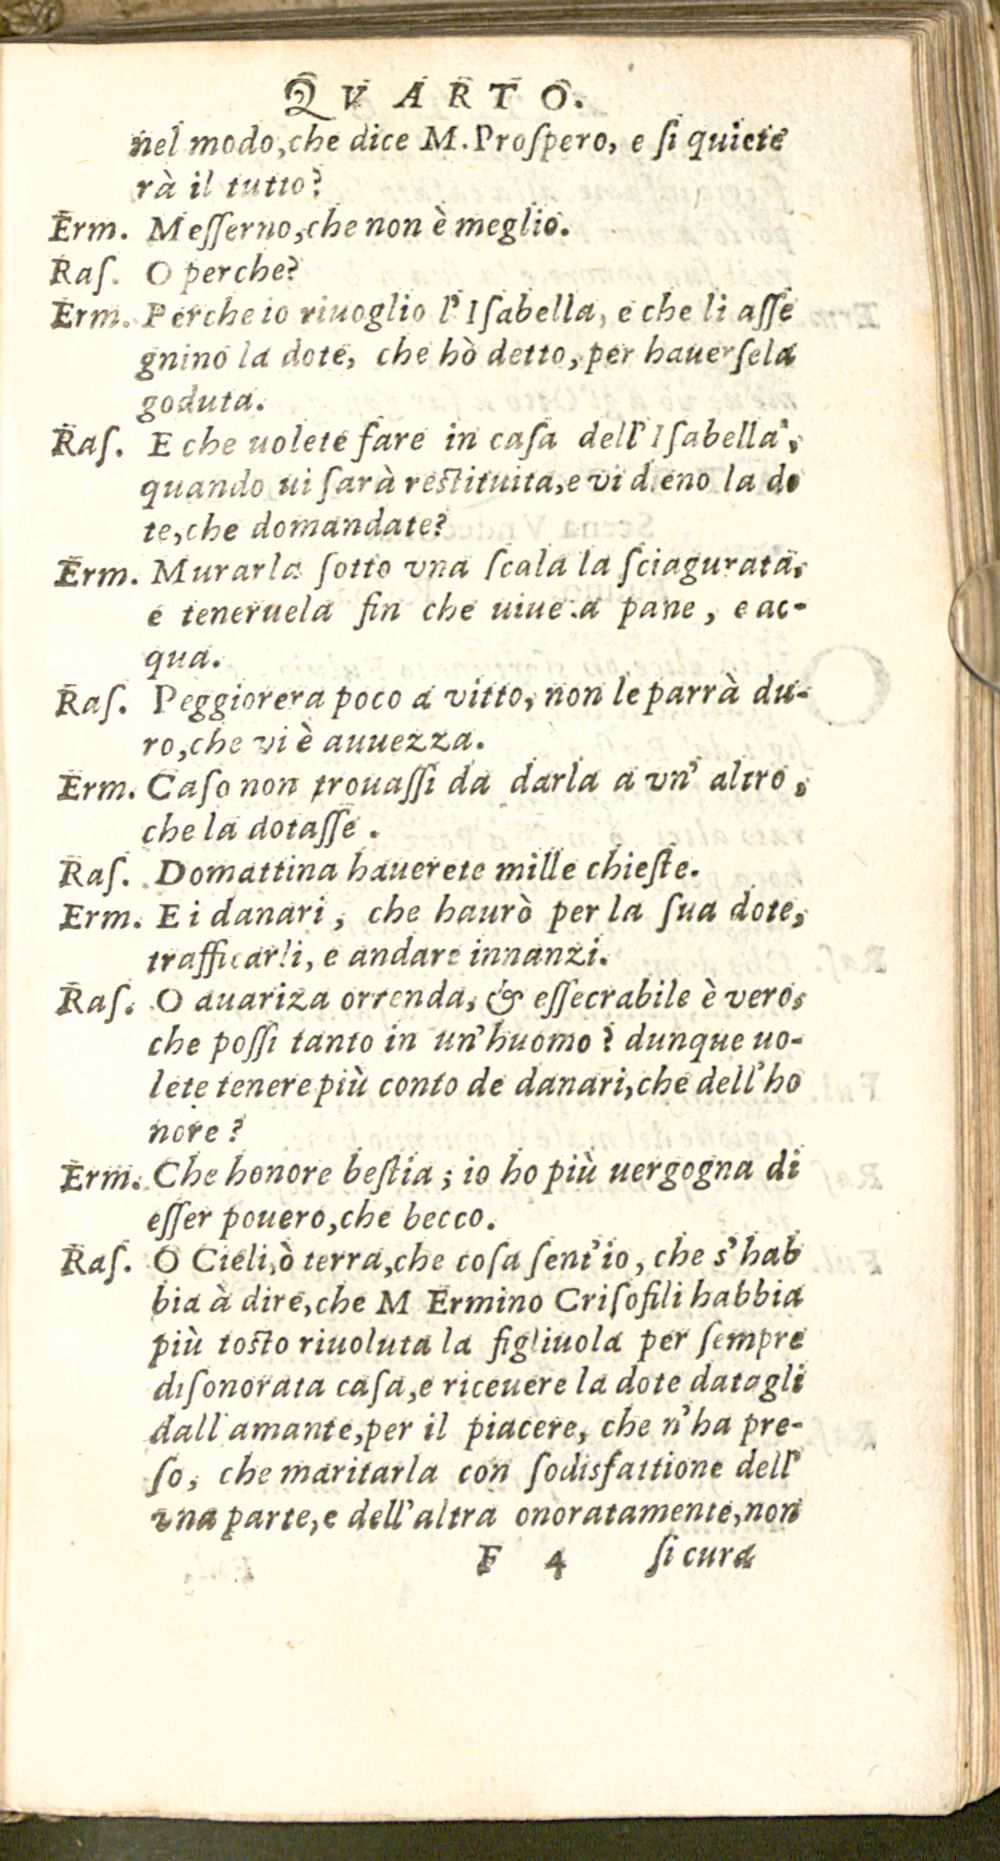 QVARTO.
nel modo, che dice M. Proſpero, e ſi quiete
rà il tutto?
Erm. Meſſerno, che non è meglio.
Raſ. O perche?
Erm. Perche io riuoglio l'Iſabella, e che li aſſe
gnino la dote, che hò detto, per hauerſela
goduta.
Raſ. E che uolete fare in caſa dell'Iſabella,
quando ui ſarà reſtituita, e vi dieno la do
te, che domandate?
Erm. Murarla ſotto vna ſcala la ſciagurata,
e teneruela fin che uiue a pane, e ac-
qua.
Raſ. Peggiorera poco a vitto, non le parrà du-
ro, che vi è auuezza.
Erm. Caſo non trouaſſi da darla a vn' altro,
che la dotaſſe.
Raſ. Domattina hauerete mille chieſte.
Erm. E i danari, che haurò per la ſua dote,
trafficarli, e andare innanzi.
Raſ. O auariza orrenda, & eſſecrabile è vero,
che poſſi tanto in un'huomo? dunque uo-
lete tenere più conto de danari, che dell'ho
nore?
Erm. Che honore beſtia; io ho più uergogna di
eſſer pouero, che becco.
Raſ. O Cieli, ò terra, che coſa ſent'io, che s'hab
bia à dire, che M Ermino Criſofili habbia
più toſto riuoluta la figliuola per ſempre
diſonorata caſa, e riceuere la dote datagli
dall'amante, per il piacere, che n'ha pre-
ſo, che maritarla con ſodisfattione dell'
vna parte, e dell'altra onoratamente, non
F 4 ſi cura